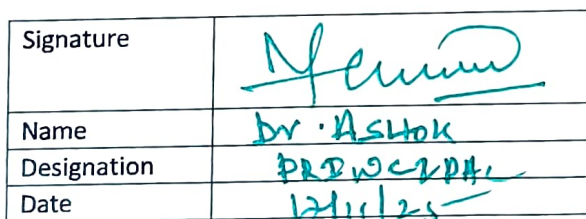 Signature
Name Dr. ASHOK
Designation PRINCIPAL
Date